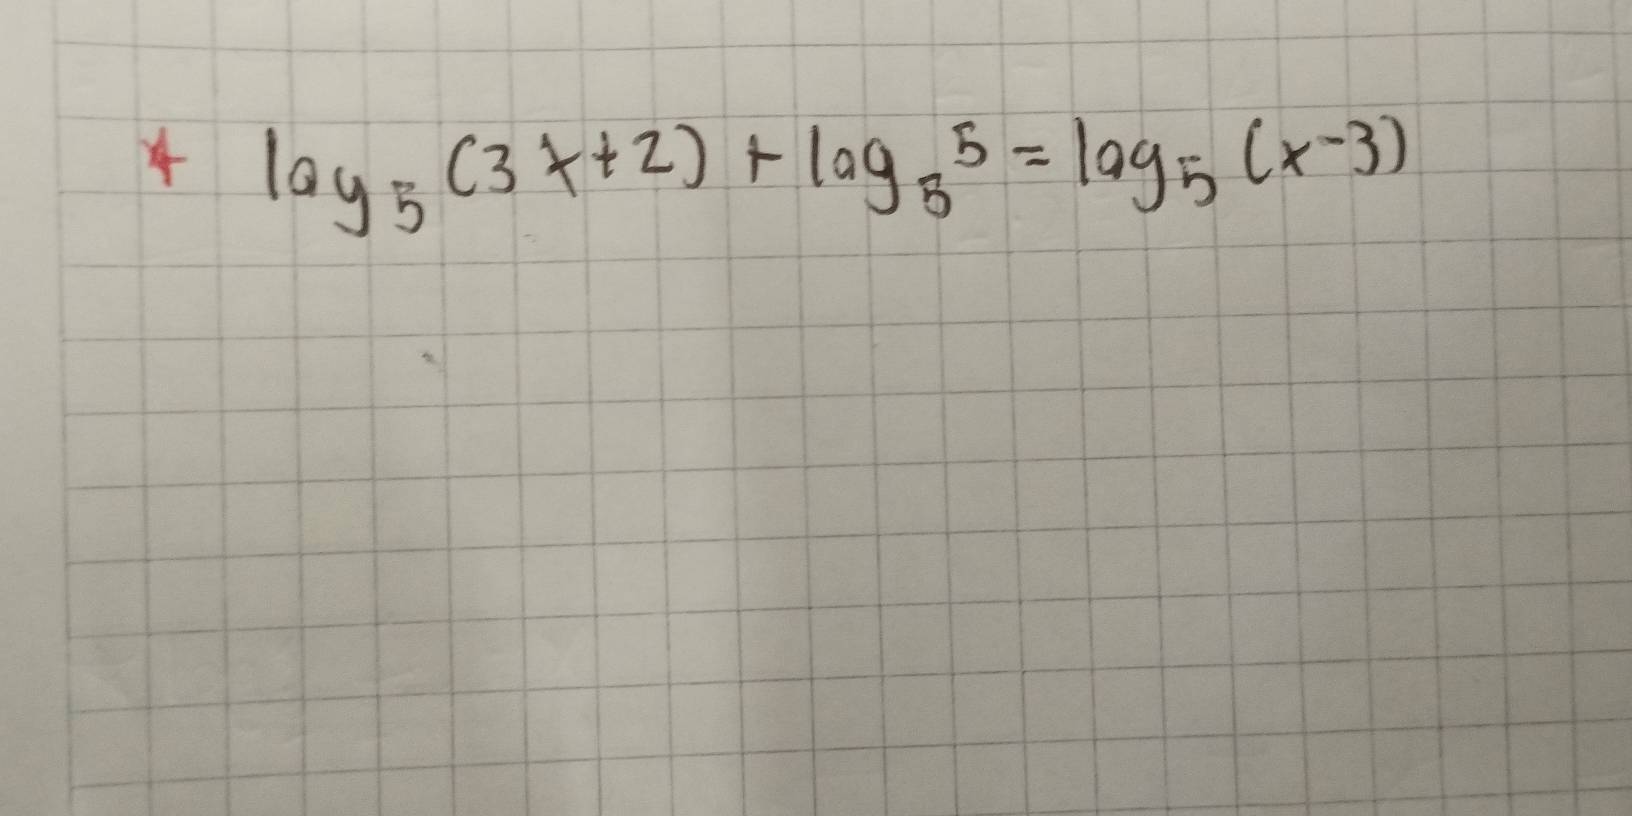 * log₅ (3x+2) + log₅ 5 = log₅ (x-3)